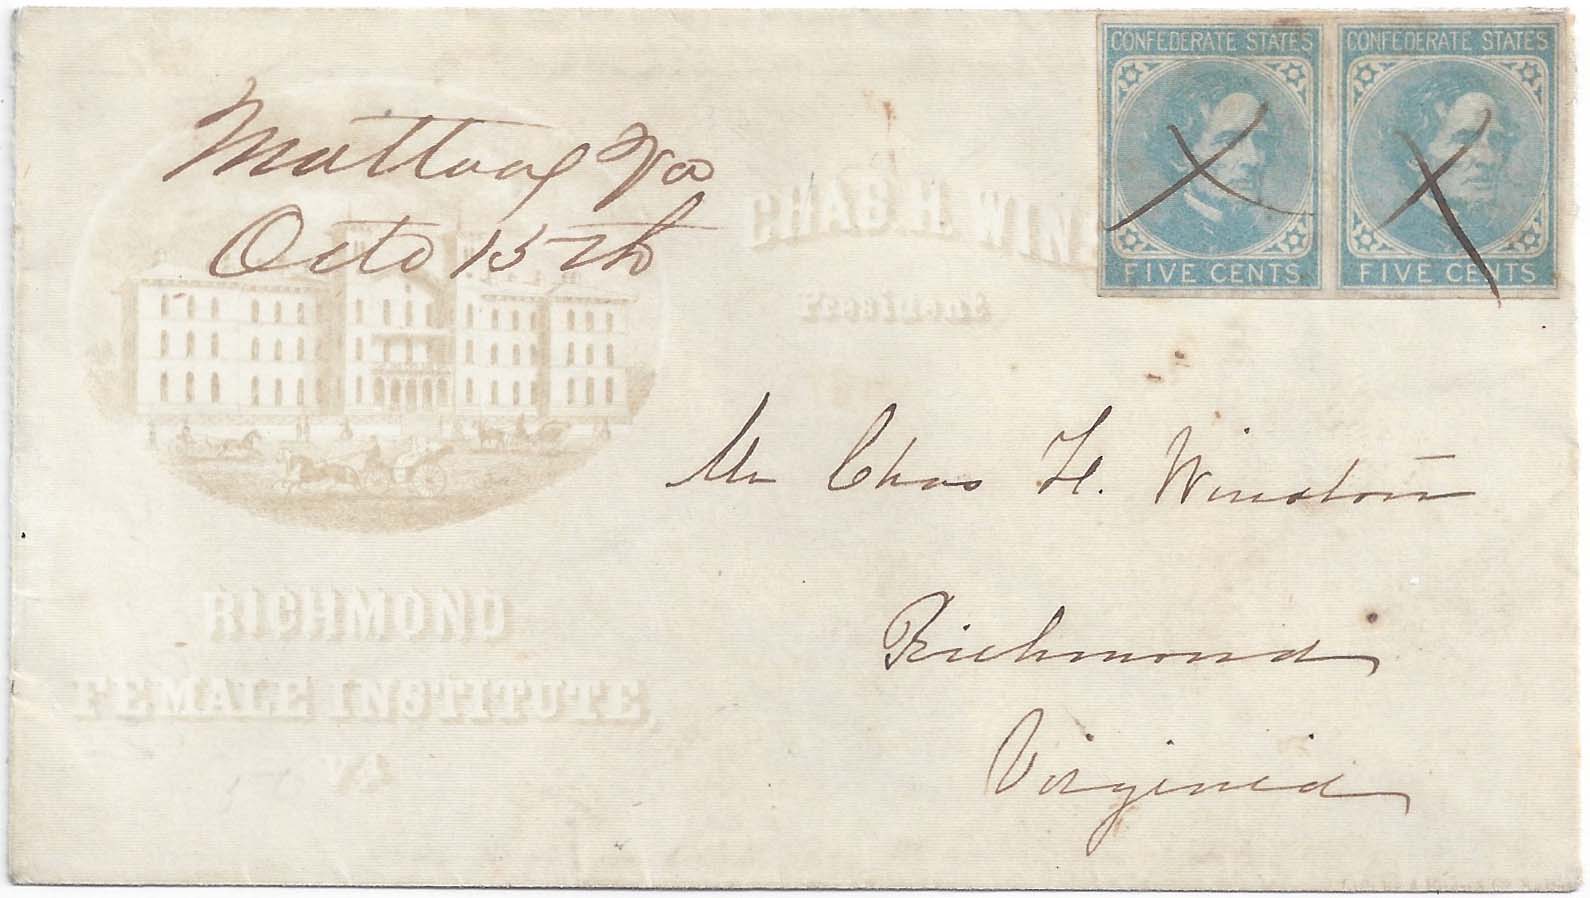 CONFEDERATE STATES
FIVE CENTS
CONFEDERATE STATES
FIVE CENTS
Mattoax Va
Octo 15th
CHAS H. WINS
President
Mr Chas H. Winston
Richmond
Virginia
RICHMOND
FEMALE INSTITUTE,
VA